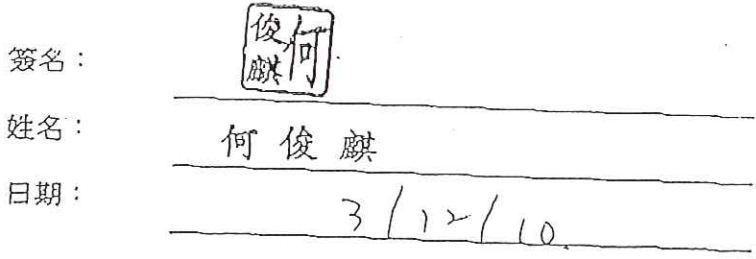 簽名：何俊麒
姓名：何俊麒
日期：3/12/10